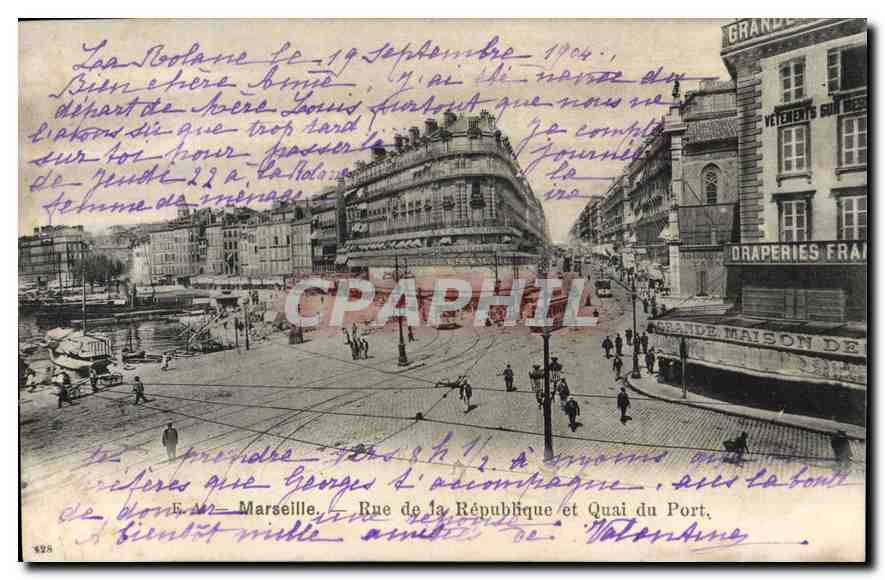 La Rolane le 19 Septembre 1904.
Bien chère Aimé, j'ai été navrée du
départ de Mère Louis surtout que nous ne
l'avons su que trop tard. Je compte
sur toi pour passer la journée
de Jeudi 22 à la
femme de ménage ira
GRANDE
VÊTEMENTS SUR MES
DRAPERIES FRAN
GRANDE MAISON DE
CAPHIL
te prendre vers 8h 1/2 à moins que tu
préfères que Georges t'accompagne, aies la bonté
de donner une réponse
E. M. - Marseille. - Rue de la République et Quai du Port.
A bientôt mille amitiés de Valentine
428